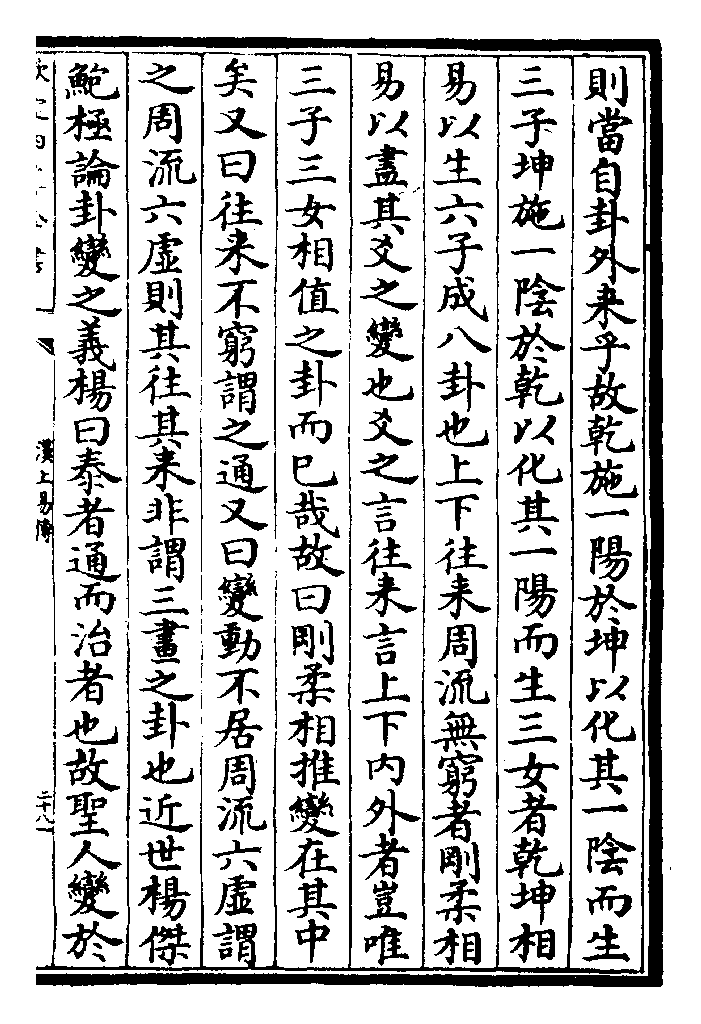 則當自卦外来乎故乾施一陽於坤以化其一隂而生
三子坤施一隂於乾以化其一陽而生三女者乾坤相
易以生六子成八卦也上下往来周流無窮者剛柔相
易以盡其爻之變也爻之言往来言上下内外者豈唯
三子三女相值之卦而已哉故曰剛柔相推變在其中
矣又曰往来不窮謂之通又曰變動不居周流六虚謂
之周流六虚則其往其来非謂三畫之卦也近世楊傑
鮑極論卦變之義楊曰泰者通而治者也故聖人變於
漢上易傳
二十八